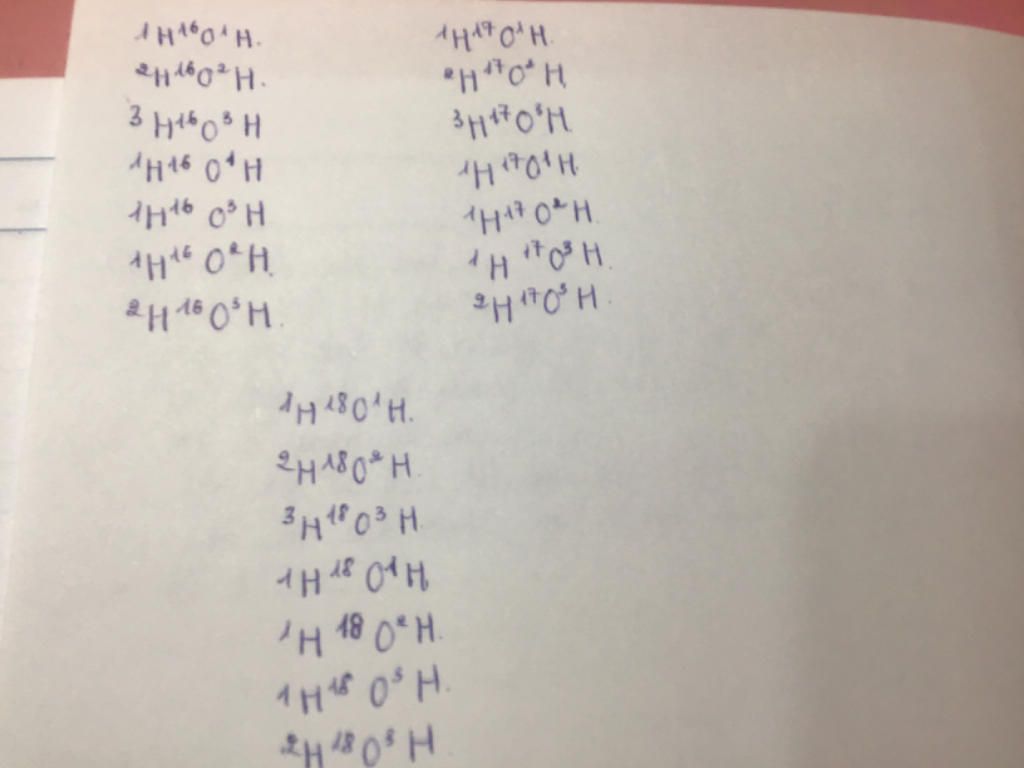 ¹H¹⁶O¹H.
²H¹⁶O²H.
³H¹⁶O³H
¹H¹⁶O¹H
¹H¹⁶O³H
¹H¹⁶O²H.
²H¹⁶O³H.
¹H¹⁷O¹H.
²H¹⁷O²H.
³H¹⁷O³H.
¹H¹⁷O¹H.
¹H¹⁷O²H.
¹H¹⁷O³H.
²H¹⁷O³H.
¹H¹⁸O¹H.
²H¹⁸O²H.
³H¹⁸O³H.
¹H¹⁸O¹H.
¹H¹⁸O²H.
¹H¹⁸O³H.
²H¹⁸O³H